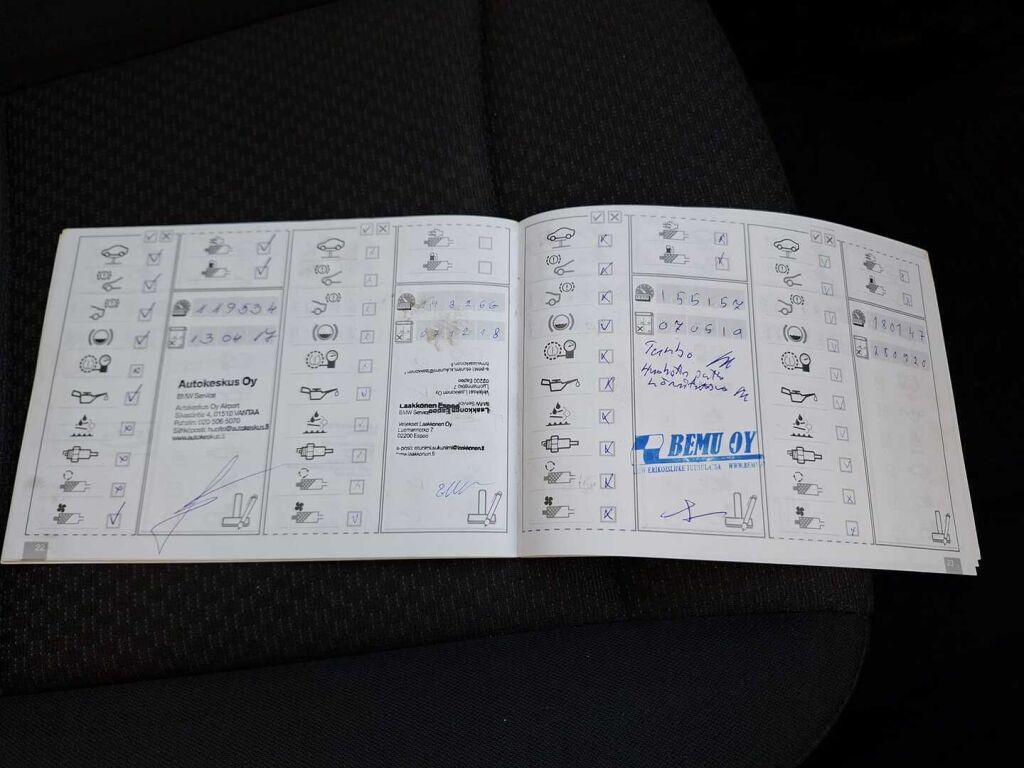 119534
130417
Autokeskus Oy
BMW Service
Autokeskus Oy Airport
Silvastintie 4, 01510 VANTAA
Puhelin: 020 506 5070
Sähköposti: huolto@autokeskus.fi
www.autokeskus.fi
22
Laakkonen Espoo
BMW Service
Veljekset Laakkonen Oy
Luomannotko 7
02200 Espoo
e-posti: etunimi.sukunimi@laakkonen.fi
155157
070519
Turbo
BEMU OY
ERIKOISLIIKE TUUSULASSA WWW.BEMU
180147
280920
23